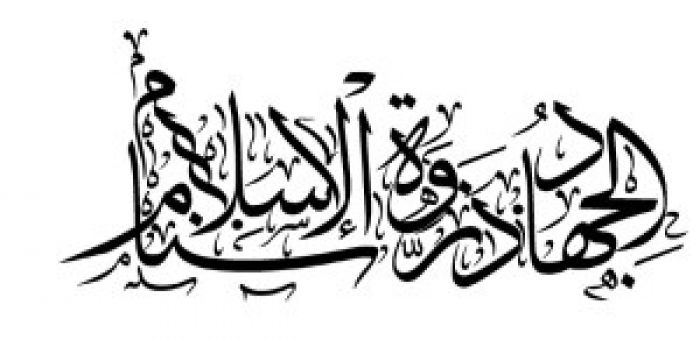 الجهاد ذروة سنام الإسلام